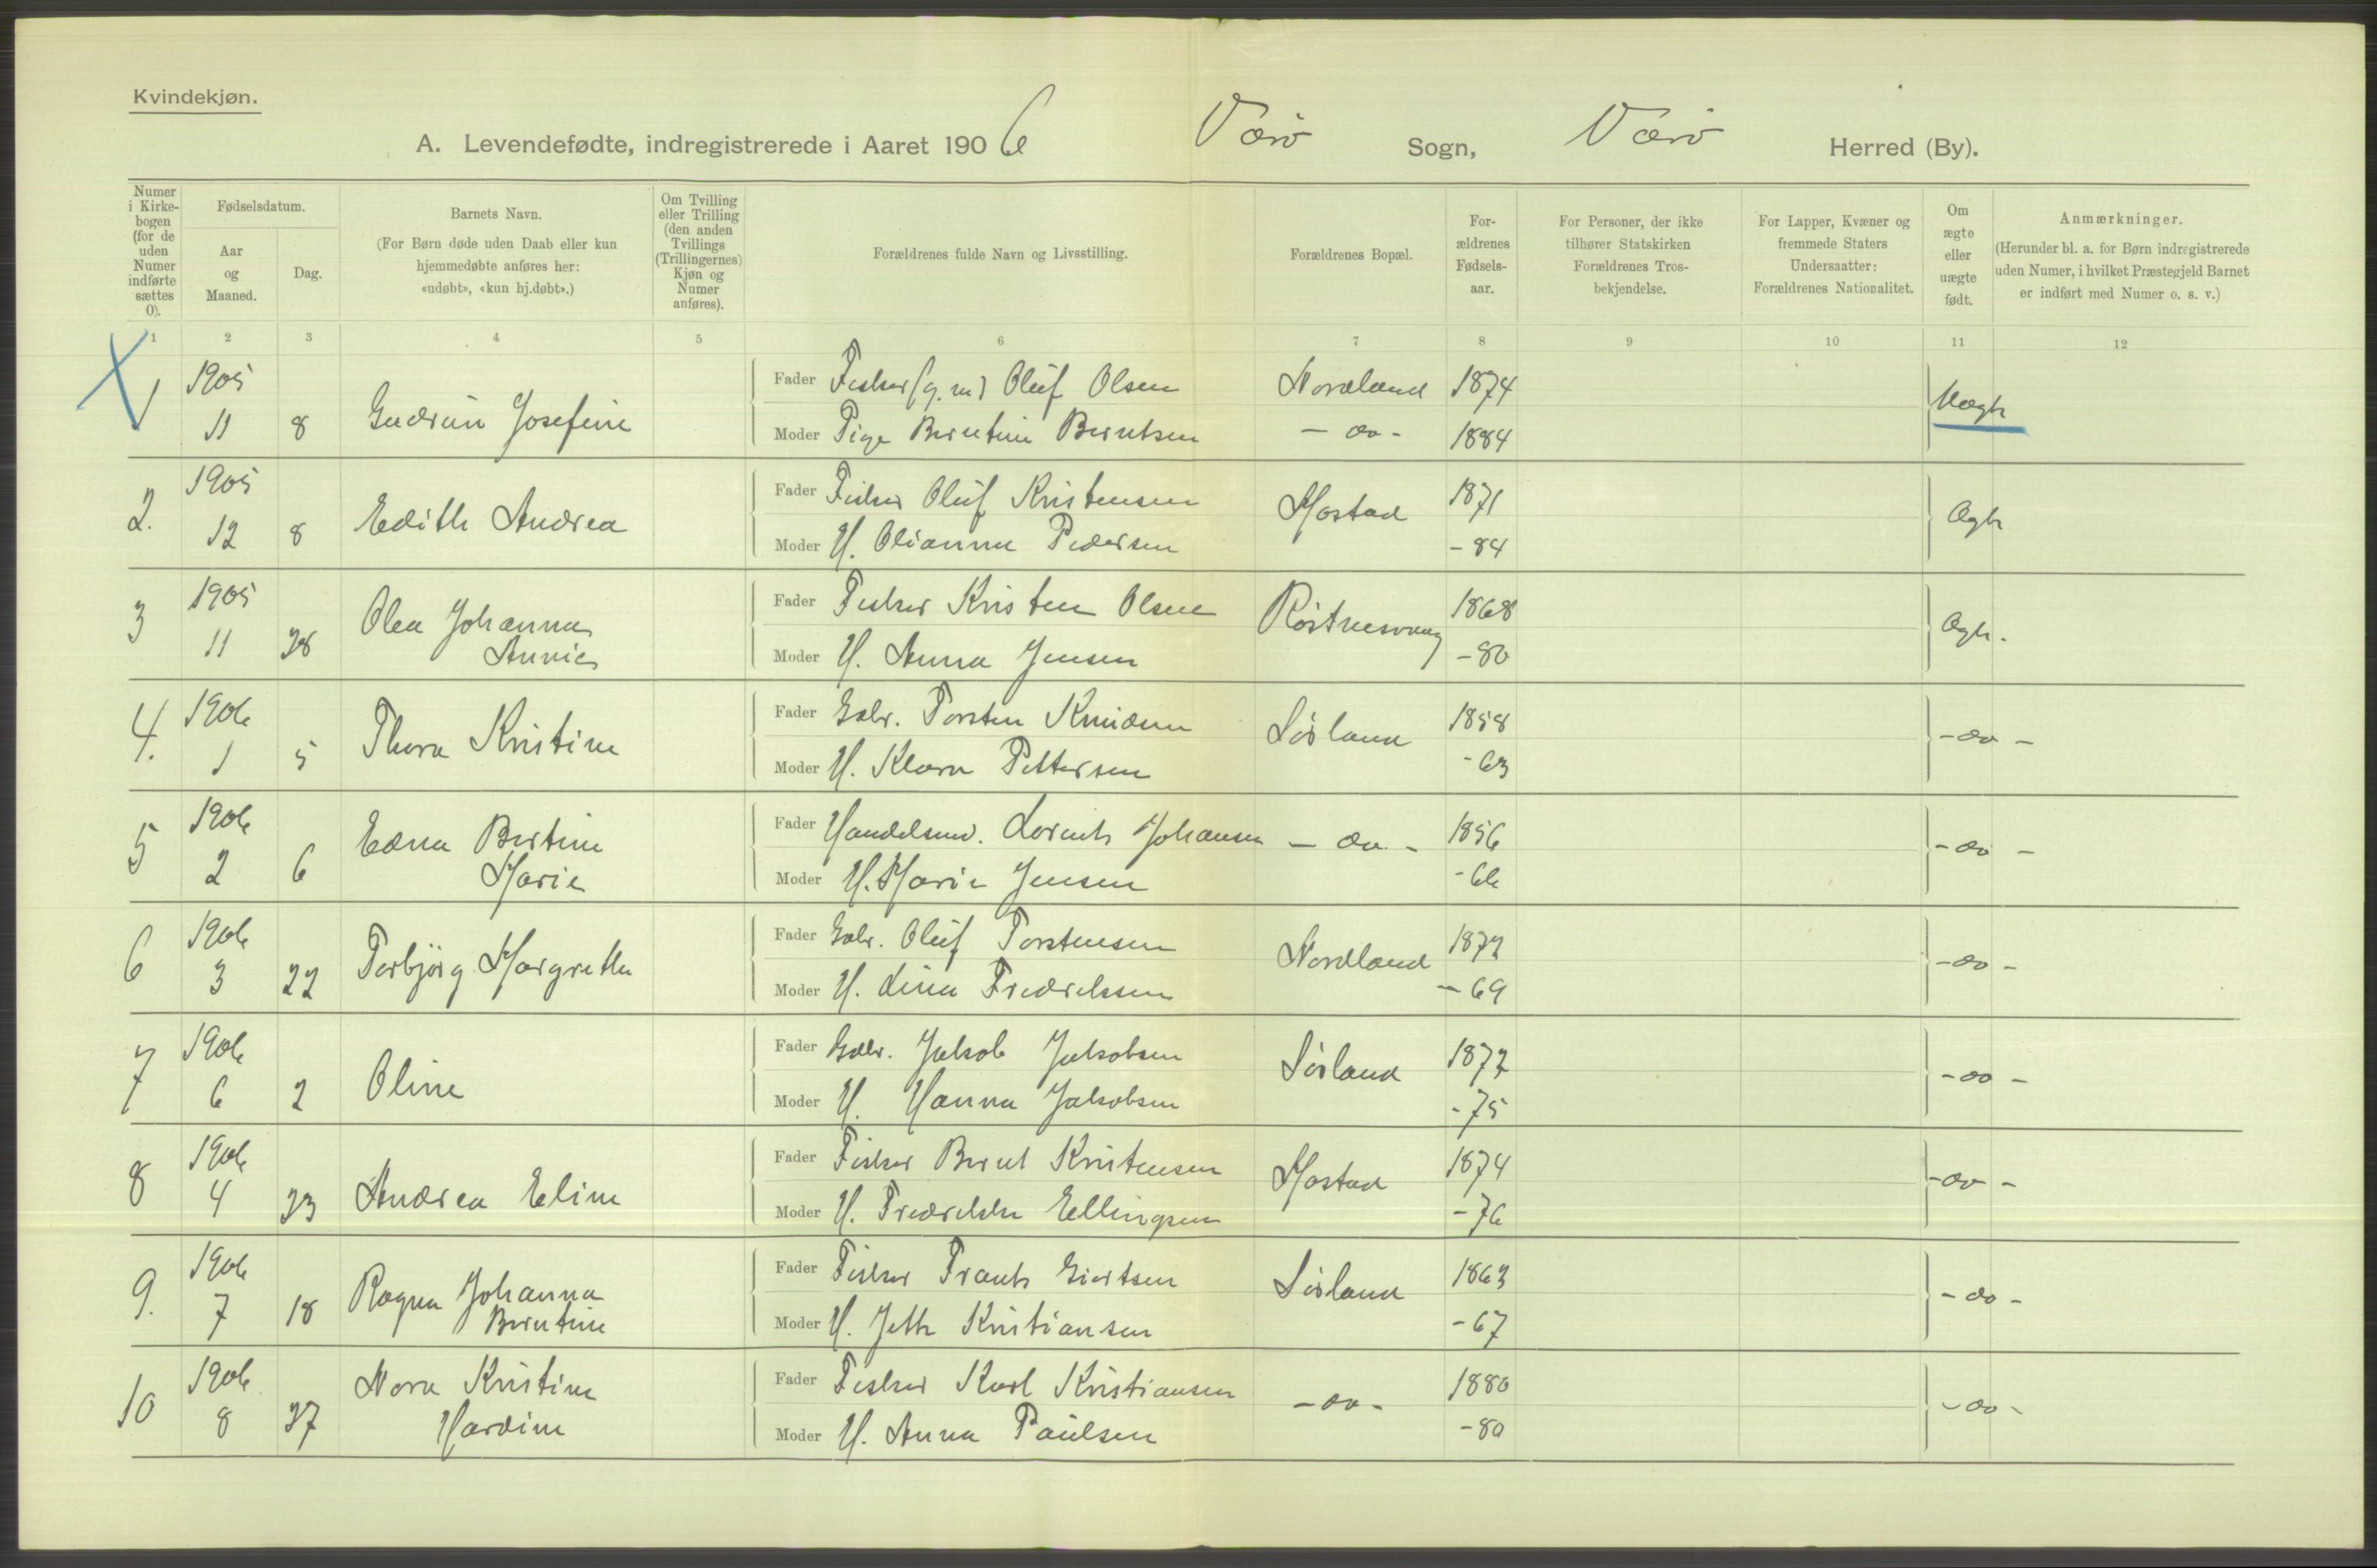 Kvindekjøn.
A. Levendefødte, indregistrerede i Aaret 1906 Værø Sogn, Værø Herred (By).
Numer i Kirke-bogen (for de uden Numer indførte sættes 0).
Fødselsdatum.
Aar og Maaned.
Dag.
Barnets Navn.
(For Børn døde uden Daab eller kun hjemmedøbte anføres her: «udøbt», «kun hj.døbt».)
Om Tvilling eller Trilling (den anden Tvillings (Trillingernes) Kjøn og Numer anføres).
Forældrenes fulde Navn og Livsstilling.
Forældrenes Bopæl.
For-ældrenes Fødsels-aar.
For Personer, der ikke tilhører Statskirken Forældrenes Tros-bekjendelse.
For Lapper, Kvæner og fremmede Staters Undersaatter: Forældrenes Nationalitet.
Om ægte eller uægte født.
Anmærkninger.
(Herunder bl. a. for Børn indregistrerede uden Numer, i hvilket Præstegjeld Barnet er indført med Numer o. s. v.)
1 2 3 4 5 6 7 8 9 10 11 12
1905 Fader Fisker (g. m) Oluf Olsen Nordland 1874
1 11 8 Gudrun Josefine Uægte
Moder Pige Berntine Berntsen - do - 1884
1905 Fader Fisker Oluf Kristensen 1871
2. 12 8 Edith Andrea Mostad Ægte
Moder H. Olianna Pedersen - 84
1905 Fader Fisker Kristen Olsen 1868
3 11 28 Olea Johanna Røstnesvaag Ægte.
Annie Moder H. Anna Jensen - 80
1906 Fader Gbr. Torsten Knudsen 1858
4. 1 5 Thora Kristine Sørland - do -
Moder H. Klara Pettersen - 63
1906 Fader Handelsmd. Lorents Johansen - do - 1856
5 2 6 Edna Bertine - do -
Marie Moder H. Marie Jensen - 66
1906 Fader Gbr. Oluf Torstensen 1872
6 3 22 Torbjørg Margrethe Nordland - do -
Moder H. Lina Fredriksen - 69
1906 Fader Gbr. Jakob Jakobsen 1872
7 6 2 Oline Sørland - do -
Moder H. Hanna Jakobsen - 75
1906 Fader Fisker Bernt Kristensen 1874
8 4 23 Andrea Eline Mostad - do -
Moder H. Fredrikke Ellingsen - 76
1906 Fader Fisker Frants Giertsen 1863
9. 7 18 Ragna Johanna Sørland - do -
Berntine Moder H. Jette Kristiansen - 67
1906 Nora Kristine Fader Fisker Karl Kristiansen 1880
10 8 27 - do - - do -
Hardine Moder H. Anna Paulsen - 80